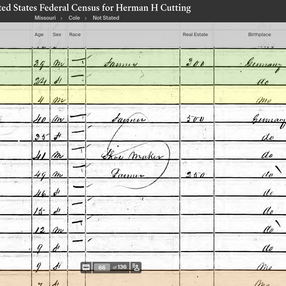 ted States Federal Census for Herman H Cutting
Missouri › Cole › Not Stated
Age Sex Race Real Estate Birthplace
29 m Farmer 300 Germany
24 f do
4 m Mo
40 m Farmer 500 Germany
35 f do
41 m Shoe Maker do
49 m Farmer 250 do
46 f do
15 f do
12 m do
9 f do
9 f Mo
66 of 136